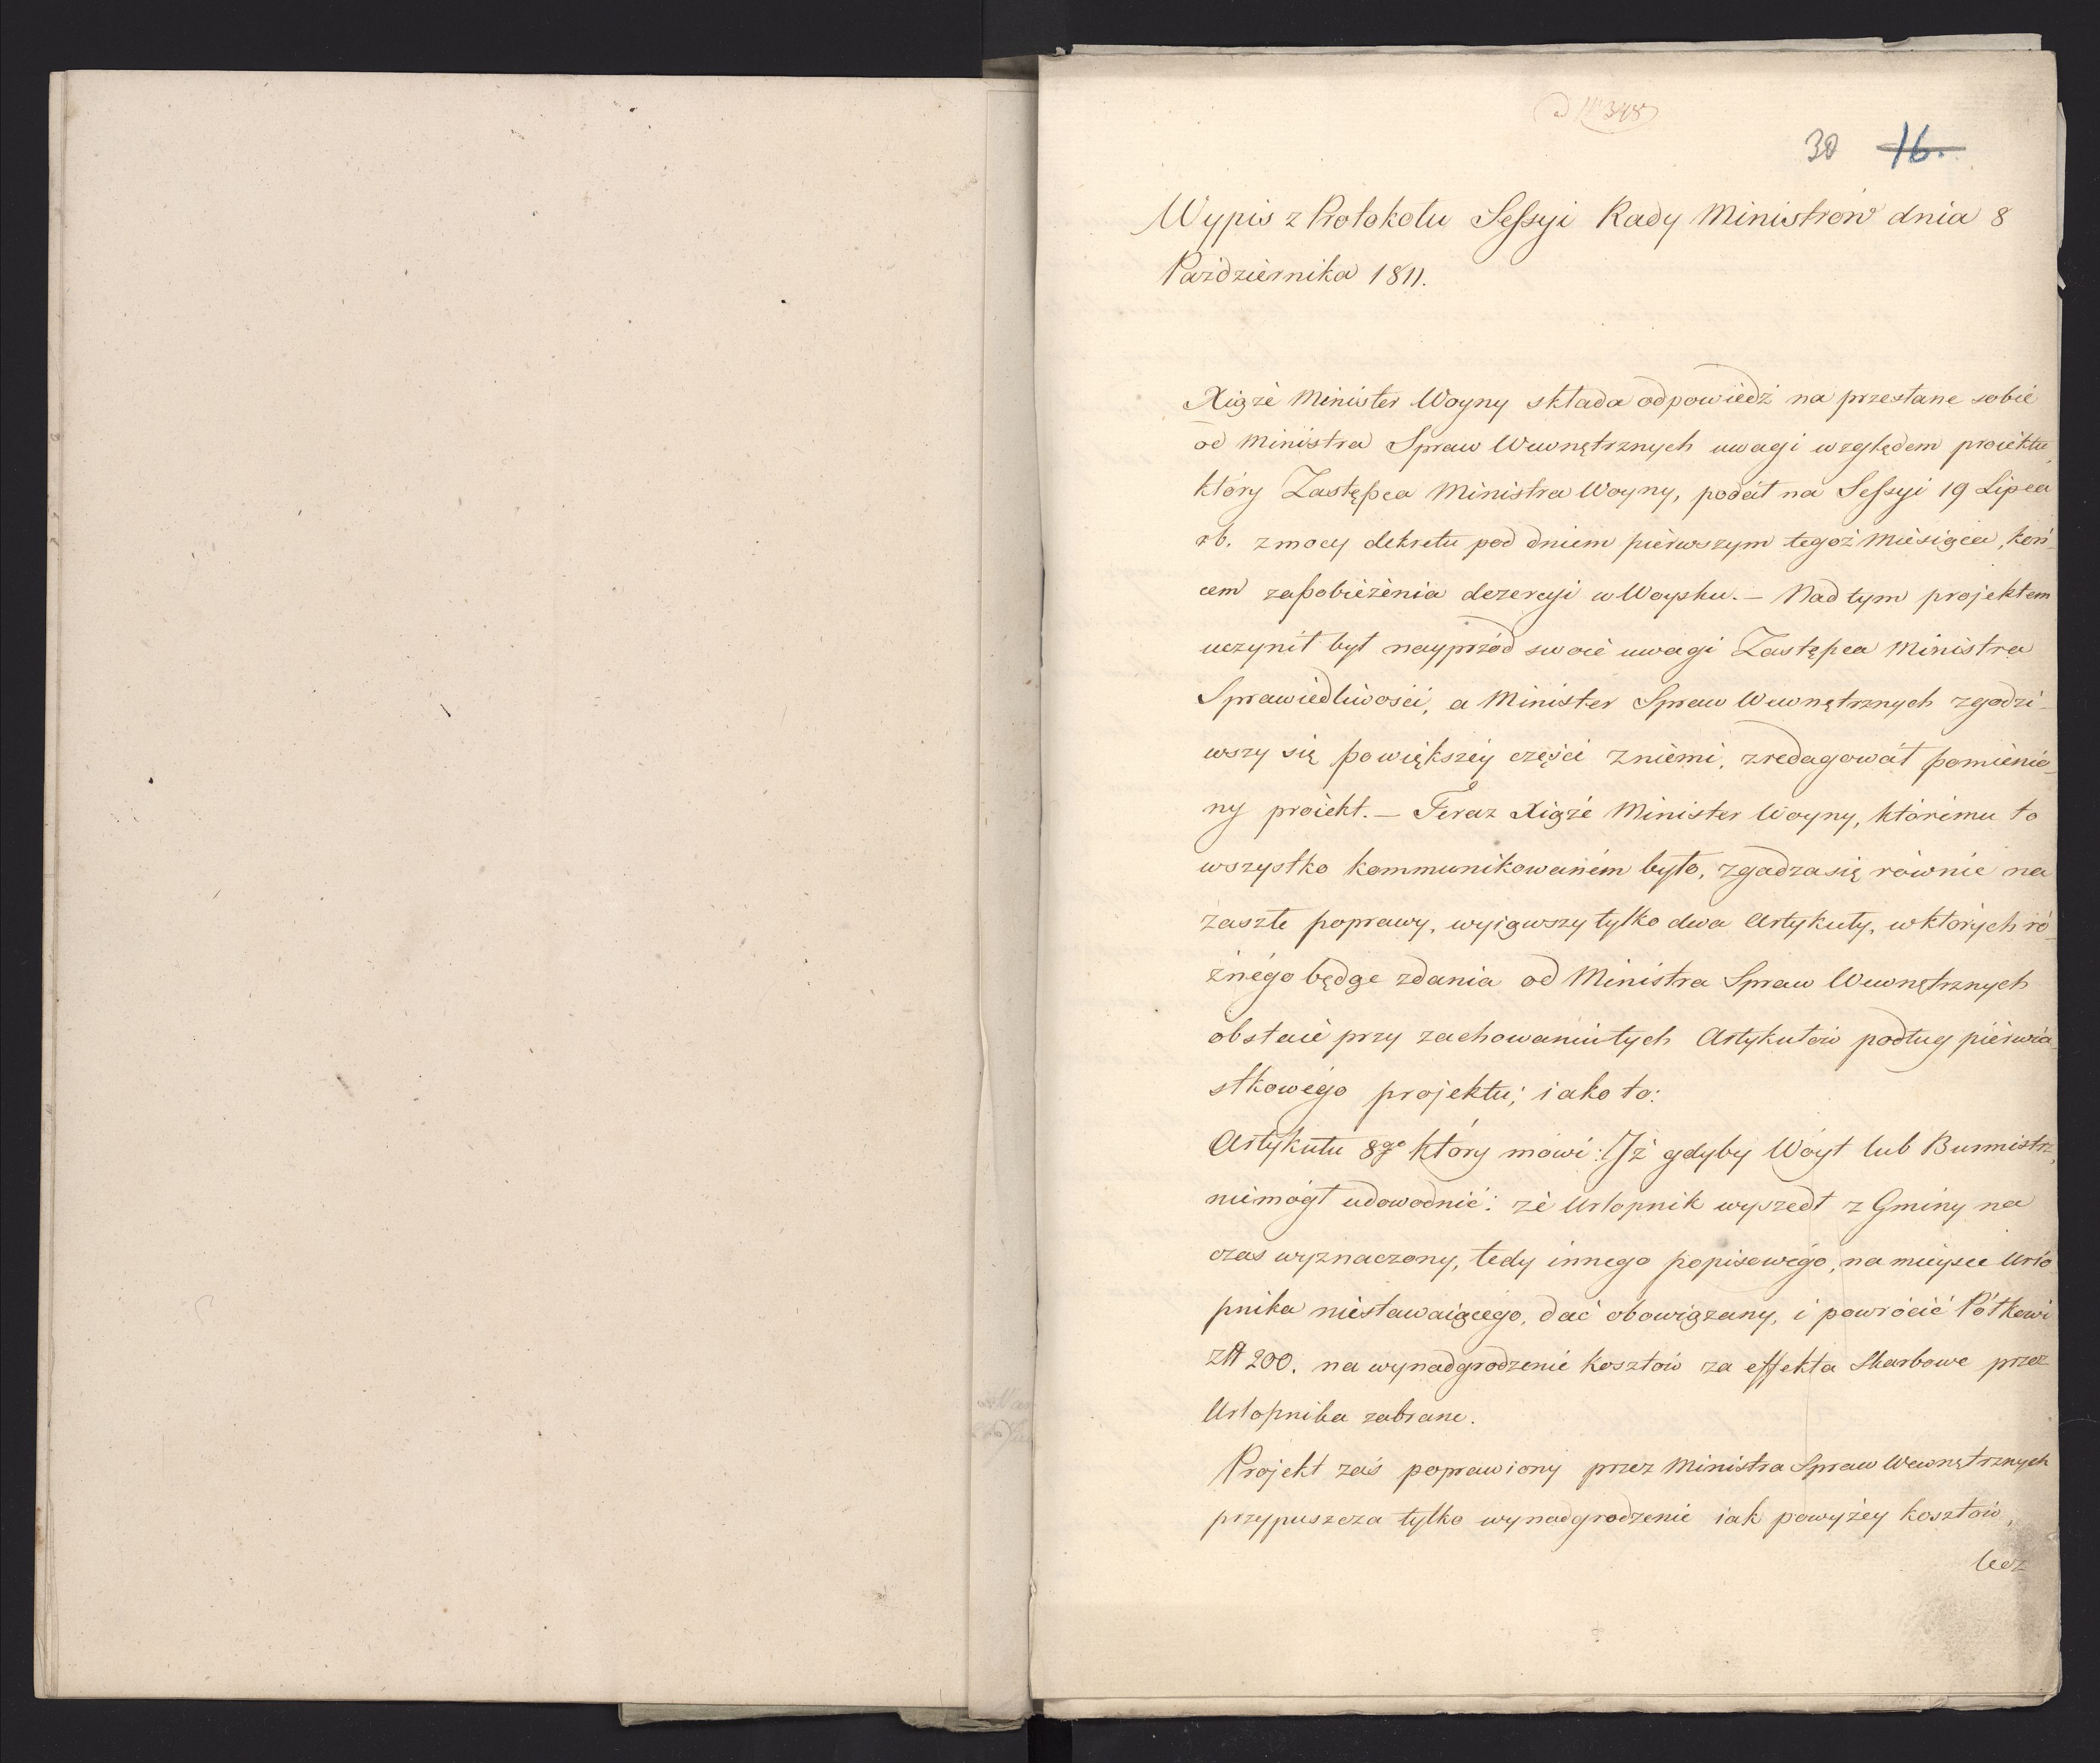 30 16.
Wypis z Protokołu Sessyi Rady Ministrów dnia 8
Pazdziernika 1811.
Xiąże Minister Woyny składa odpowiedź na przesłane sobie
od Ministra Spraw Wewnętrznych uwagi względem proiektu,
który Zastępca Ministra Woyny, podał na Sessyi 19 Lipca
rb. z mocy dekretu pod dniem pierwszym tegoż Miesiąca, koń-
cem zapobieżenia dezercyi w Woysku. — Nad tym projektem
uczynił był nayprzód swoie uwagi Zastępca Ministra
Sprawiedliwości, a Minister Spraw Wewnętrznych zgodzi-
wszy się powiększéy części z niemi, zredagował pomienio-
ny proiekt. — Teraz Xiąże Minister Woyny, któremu to
wszystko kommunikowaném było, zgadza się równie na
zaszłe poprawy, wyiąwszy tylko dwa Artykuły, w których ró-
żnégo będąc zdania od Ministra Spraw Wewnętrznych
obstaie przy zachowaniu tych Artykułów podług pierwia-
stkowégo projektu; iako to:
Artykułu 8go który mówi: Iż gdyby Wóyt lub Burmistrz,
niemógł udowodnić: że Urlopnik wyszedł z Gminy na
czas wyznaczony, tedy innego popisowégo, na mieysce Urlo-
pnika niestawaiącego, dać obowiązany, i powrócić Półkowi
zł 200. na wynadgrodzenie kosztów za effekta Skarbowe przez
Urlopnika zabrane.
Projekt zaś poprawiony przez Ministra Spraw Wewnętrznych
przypuszcza tylko wynadgrodzenie iak powyżey kosztów,
lecz